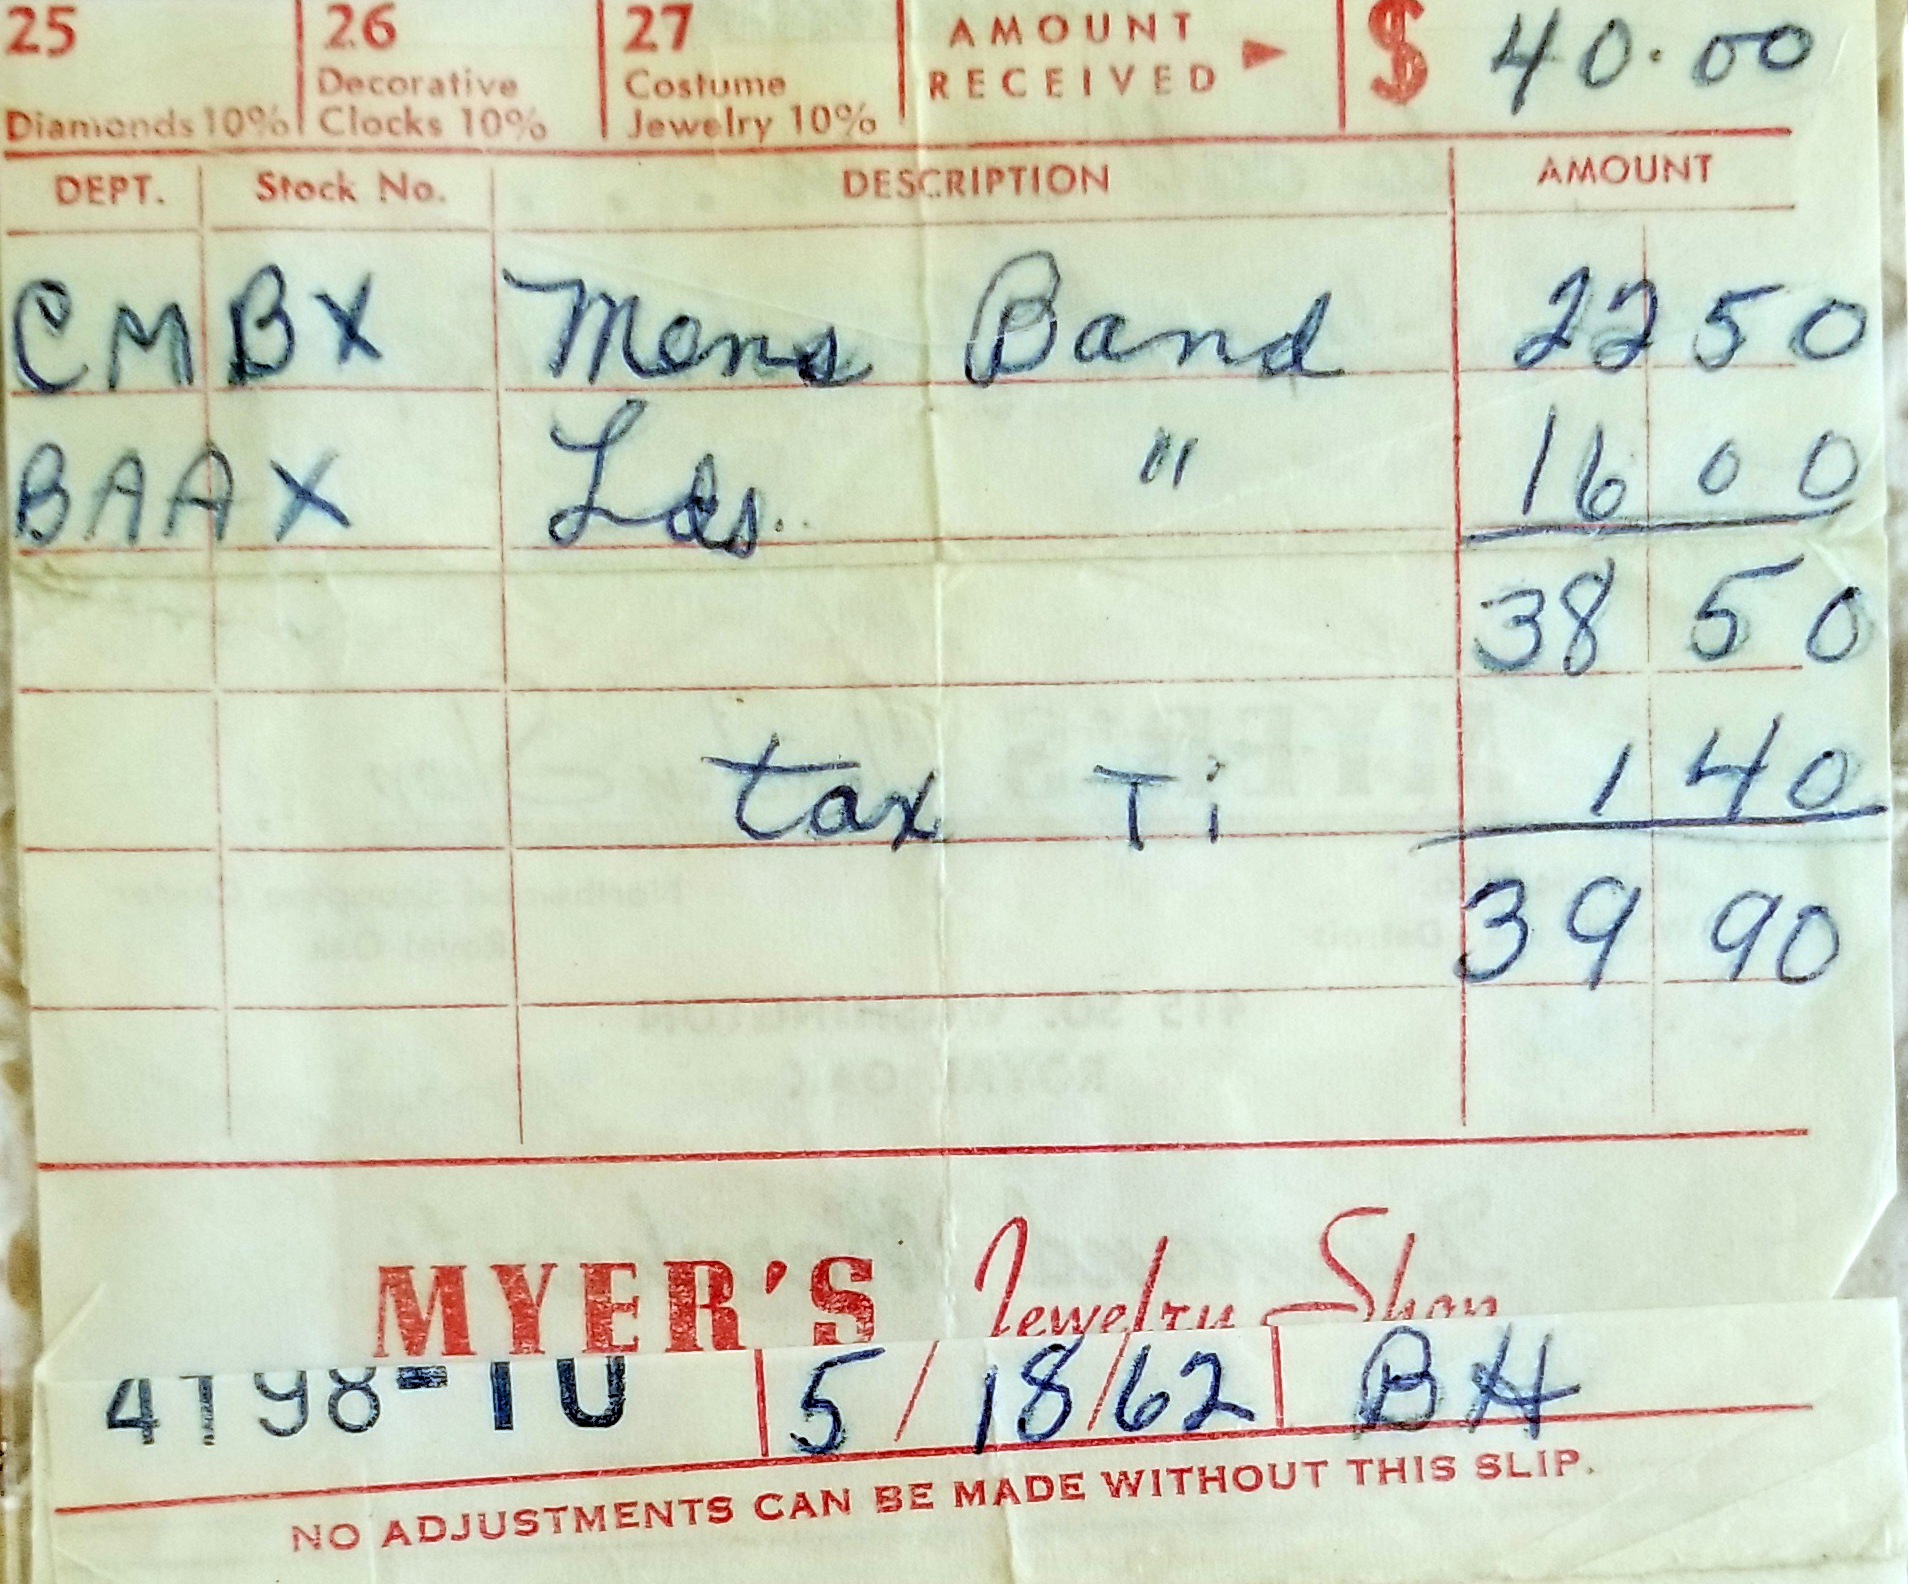 25 26 27 AMOUNT RECEIVED $ 40.00
Diamonds 10% Decorative Clocks 10% Costume Jewelry 10%
DEPT. Stock No. DESCRIPTION AMOUNT
CMBX Mens Band 22 50
BAAX Lds. " 16 00
38 50
tax Ti 1 40
39 90
MYER'S Jewelry Shop
4198-10 5/18/62 BH
NO ADJUSTMENTS CAN BE MADE WITHOUT THIS SLIP.